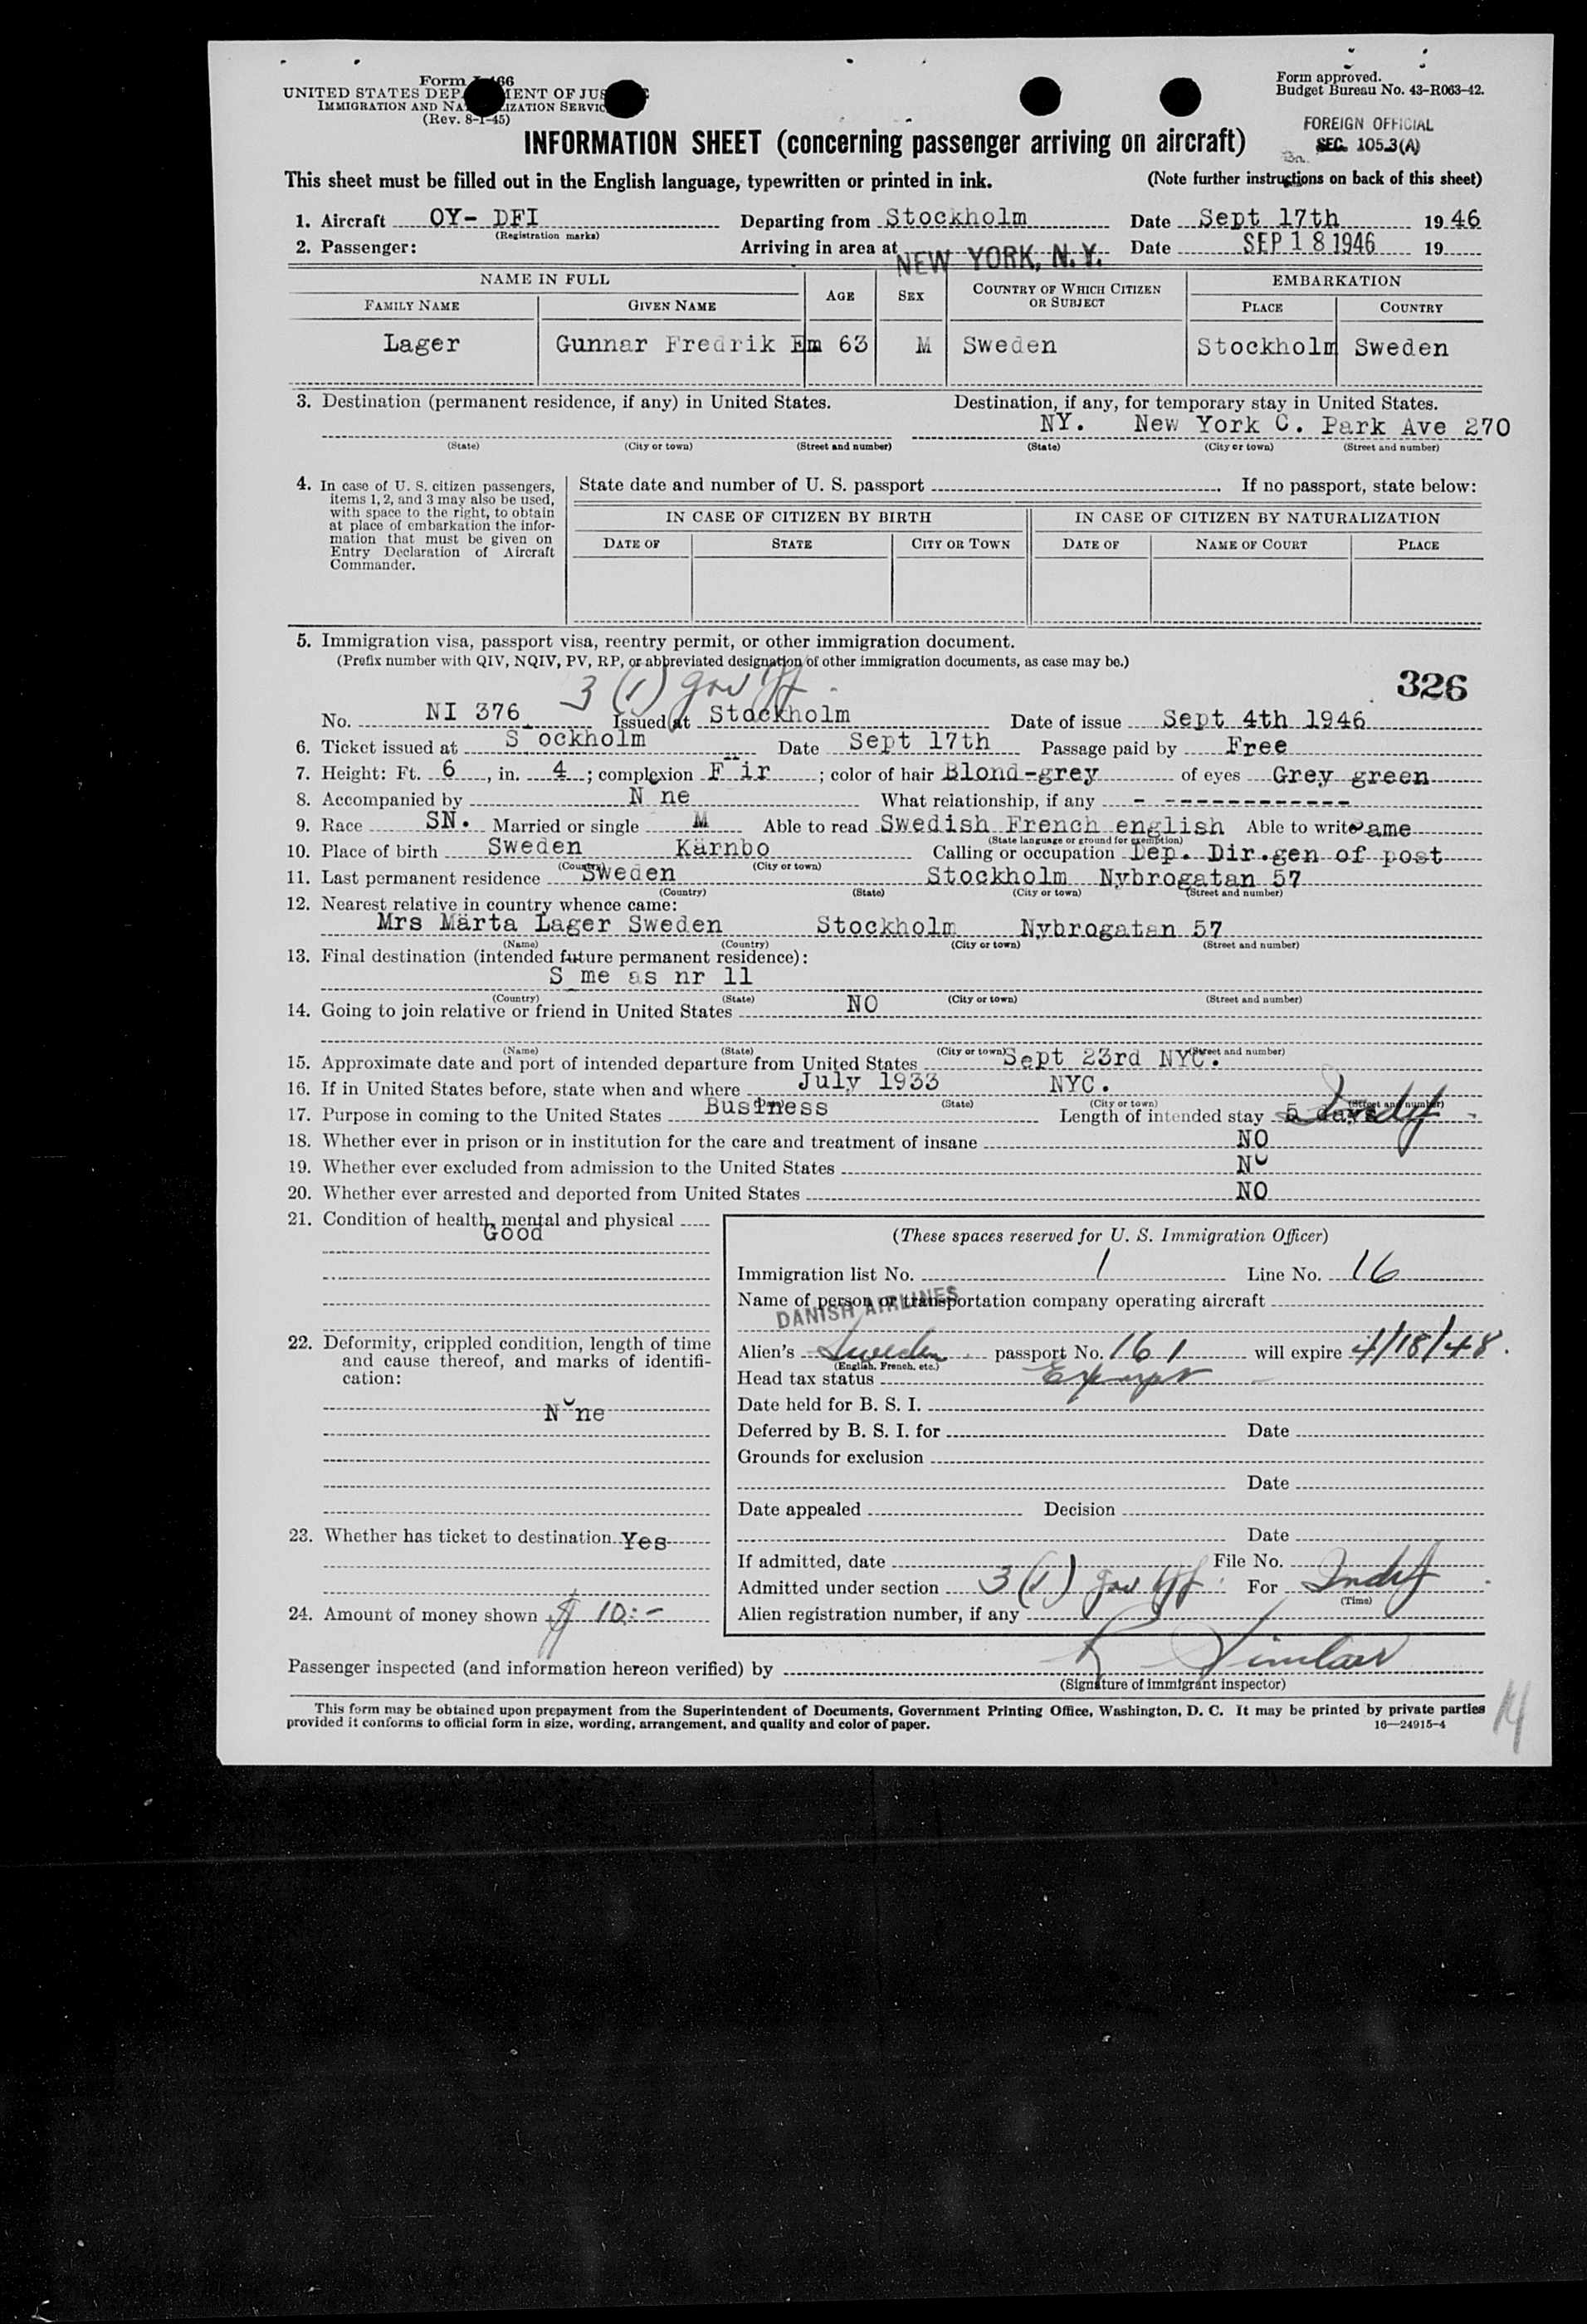 Form I-466
UNITED STATES DEPARTMENT OF JUSTICE
IMMIGRATION AND NATURALIZATION SERVICE
(Rev. 8-1-45)
Form approved.
Budget Bureau No. 43-R063-42.
FOREIGN OFFICIAL
SEC. 105.3(A)
INFORMATION SHEET (concerning passenger arriving on aircraft)
This sheet must be filled out in the English language, typewritten or printed in ink. (Note further instructions on back of this sheet)
1. Aircraft OY- DFI Departing from Stockholm Date Sept 17th 1946
(Registration marks)
2. Passenger: Arriving in area at NEW YORK, N.Y. Date SEP 18 1946 19
NAME IN FULL AGE SEX COUNTRY OF WHICH CITIZEN OR SUBJECT EMBARKATION
FAMILY NAME GIVEN NAME PLACE COUNTRY
Lager Gunnar Fredrik Em 63 M Sweden Stockholm Sweden
3. Destination (permanent residence, if any) in United States. Destination, if any, for temporary stay in United States.
NY. New York C. Park Ave 270
(State) (City or town) (Street and number) (State) (City or town) (Street and number)
4. In case of U. S. citizen passengers, items 1, 2, and 3 may also be used, with space to the right, to obtain at place of embarkation the information that must be given on Entry Declaration of Aircraft Commander.
State date and number of U. S. passport If no passport, state below:
IN CASE OF CITIZEN BY BIRTH IN CASE OF CITIZEN BY NATURALIZATION
DATE OF STATE CITY OR TOWN DATE OF NAME OF COURT PLACE
5. Immigration visa, passport visa, reentry permit, or other immigration document.
(Prefix number with QIV, NQIV, PV, RP, or abbreviated designation of other immigration documents, as case may be.)
3 (1) gov off. 326
No. NI 376 Issued at Stockholm Date of issue Sept 4th 1946
6. Ticket issued at S ockholm Date Sept 17th Passage paid by Free
7. Height: Ft. 6, in. 4; complexion F ir; color of hair Blond-grey of eyes Grey green
8. Accompanied by N ne What relationship, if any - ------------
9. Race SN. Married or single M Able to read Swedish French english Able to write ame
(State language or ground for exemption)
10. Place of birth Sweden Kärnbo Calling or occupation Dep. Dir.gen of post
(Country) (City or town)
11. Last permanent residence Sweden Stockholm Nybrogatan 57
(Country) (State) (City or town) (Street and number)
12. Nearest relative in country whence came:
Mrs Märta Lager Sweden Stockholm Nybrogatan 57
(Name) (Country) (City or town) (Street and number)
13. Final destination (intended future permanent residence):
S me as nr 11
(Country) (State) (City or town) (Street and number)
14. Going to join relative or friend in United States NO
(Name) (State) (City or town) (Street and number)
15. Approximate date and port of intended departure from United States Sept 23rd NYC.
16. If in United States before, state when and where July 1933 NYC.
(State) (City or town) (Street and number)
17. Purpose in coming to the United States Business Length of intended stay 5 days Indef
18. Whether ever in prison or in institution for the care and treatment of insane NO
19. Whether ever excluded from admission to the United States NO
20. Whether ever arrested and deported from United States NO
21. Condition of health, mental and physical
Good
22. Deformity, crippled condition, length of time and cause thereof, and marks of identification:
None
23. Whether has ticket to destination Yes
24. Amount of money shown $ 10:-
(These spaces reserved for U. S. Immigration Officer)
Immigration list No. 1 Line No. 16
Name of person or transportation company operating aircraft
DANISH AIRLINES
Alien's Sweden passport No. 161 will expire 4/18/48.
(English, French, etc.)
Head tax status Exempt
Date held for B. S. I.
Deferred by B. S. I. for Date
Grounds for exclusion
Date
Date appealed Decision
Date
If admitted, date File No.
Admitted under section 3 (1) gov off. For Indef
(Time)
Alien registration number, if any
Passenger inspected (and information hereon verified) by R
(Signature of immigrant inspector)
This form may be obtained upon prepayment from the Superintendent of Documents, Government Printing Office, Washington, D. C. It may be printed by private parties
provided it conforms to official form in size, wording, arrangement, and quality and color of paper. 16—24915-4
14